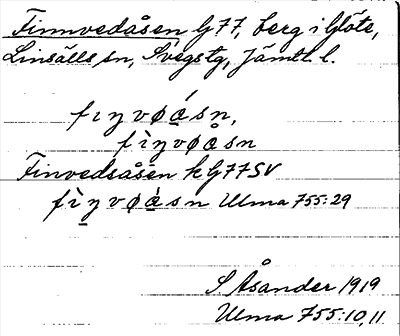 Finnvedåsen G77, berg i Glöte,
Linsälls sn, Svegs tg, Jämtl. l.
fıŋvøa̲sn,
fìŋvøåsn
Finvedsåsen k G77SV
fìŋvøa̲sn Ulma 755:29
S Åsander 1919
Ulma 755:10,11